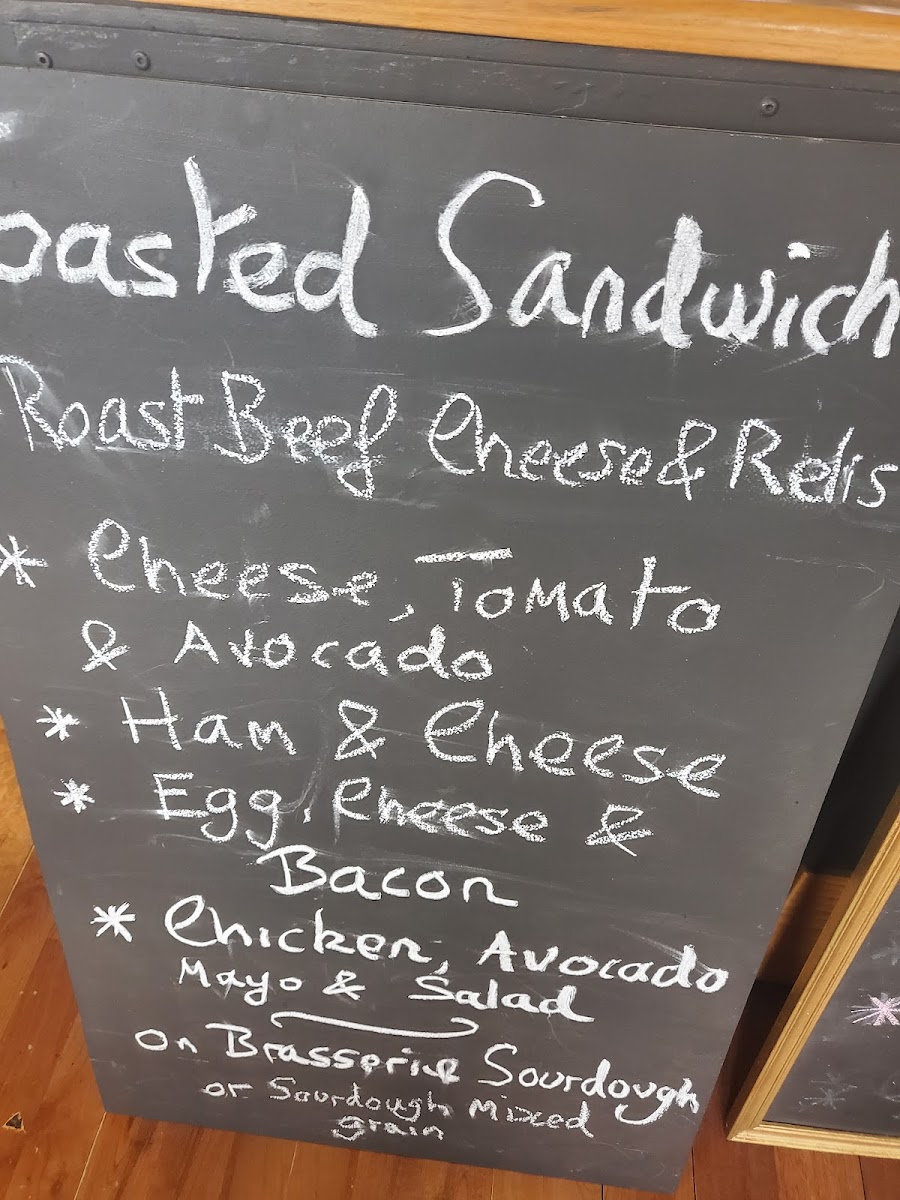 oasted Sandwich
Roast Beef Cheese & Relis
* Cheese, Tomato
& Avocado
* Ham & Cheese
* Egg, Cheese &
Bacon
* Chicken, Avocado
Mayo & Salad
On Brasserie Sourdough
or Sourdough Mixed
grain